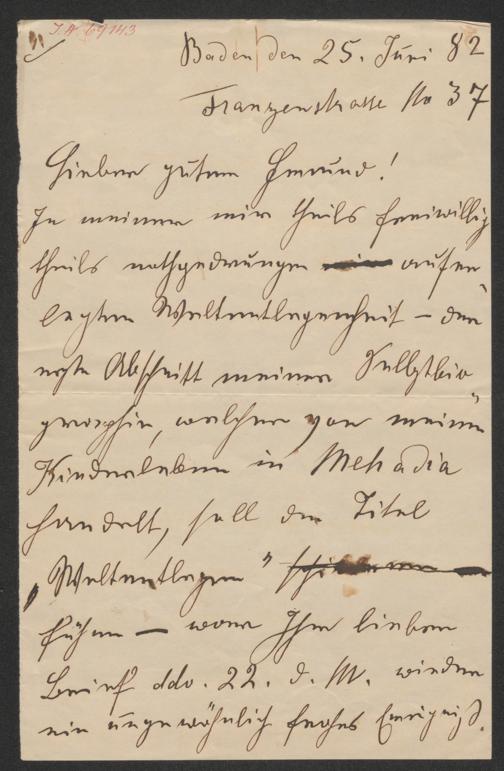 J.N. 69143
Baden den 25. Juni 82
Franzenstrasse No 37
Lieber guter Freund!
In meiner mir theils freiwillig
theils nothgedrungen aufer-
legten Weltentlegenheit – der
erste Abschnitt meiner Selbstbio-
graphie, welcher von meinem
Kinderleben in Mehadia
handelt, soll den Titel
„Weltentlegen"
führen – war Ihr lieber
Brief ddo. 22. d. M. wieder
ein ungewöhnlich frohes Ereigniß.